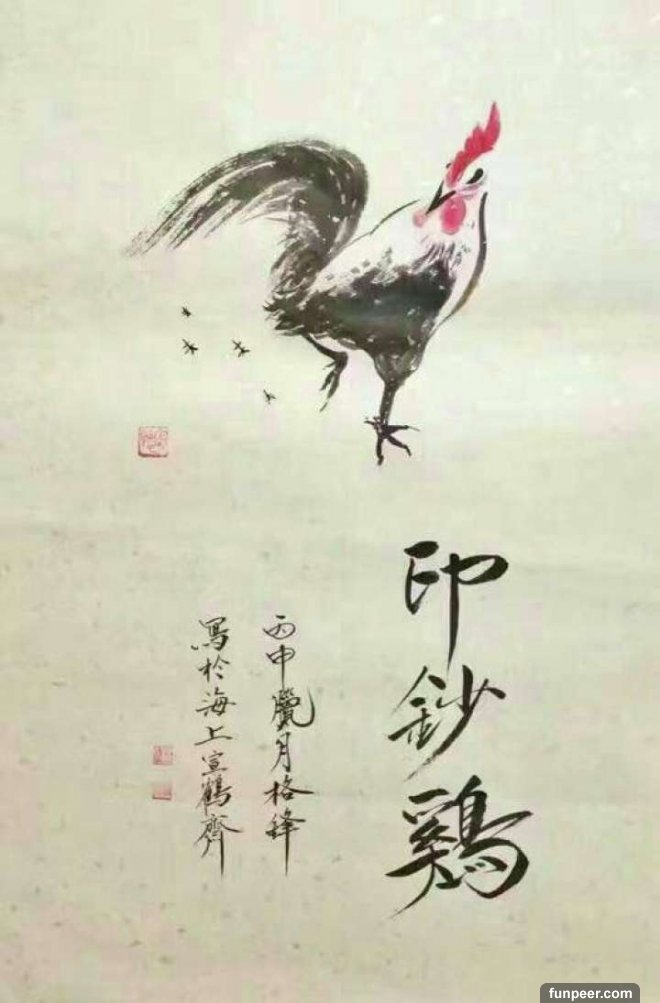 印鈔鷄
丙申臘月格鋒
寫於海上宣鶴齊
funpeer.com